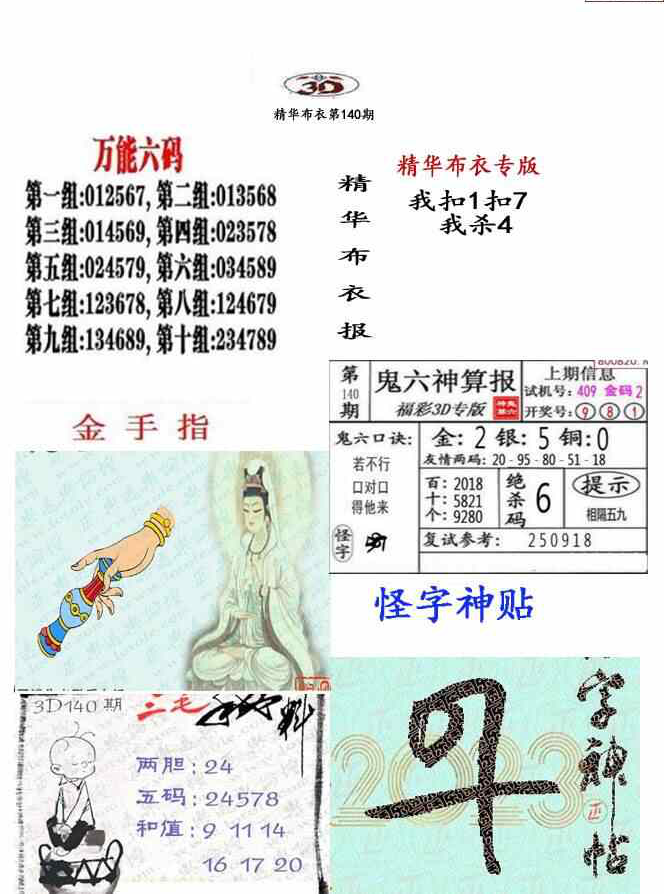 3D
精华布衣第140期
万能六码
第一组:012567,第二组:013568
第三组:014569,第四组:023578
第五组:024579,第六组:034589
第七组:123678,第八组:124679
第九组:134689,第十组:234789
精华布衣报
精华布衣专版
我扣1扣7
我杀4
金手指
第140期
鬼六神算报
福彩3D专版
上期信息
试机号:409 金码2
开奖号:981
鬼六口诀:
若不行
口对口
得他来
怪字
金:2银:5铜:0
友情两码:20-95-80-51-18
百:2018
十:5821
个:9280
绝杀码
6
提示
相隔五九
复试参考: 250918
怪字神贴
3D140期
三毛
两胆:24
五码:24578
和值:9 11 14
16 17 20
字神帖
2023